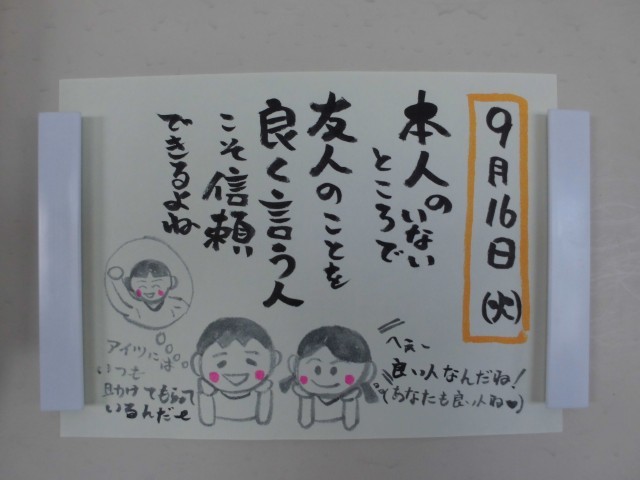 9月16日(火)
本人のいない
ところで
友人のことを
良く言う人
こそ信頼
できるよね
アイツには
いつも
助けてもらって
いるんだぜ
へぇ〜
良い人なんだね!
(あなたも良い人ね♥)